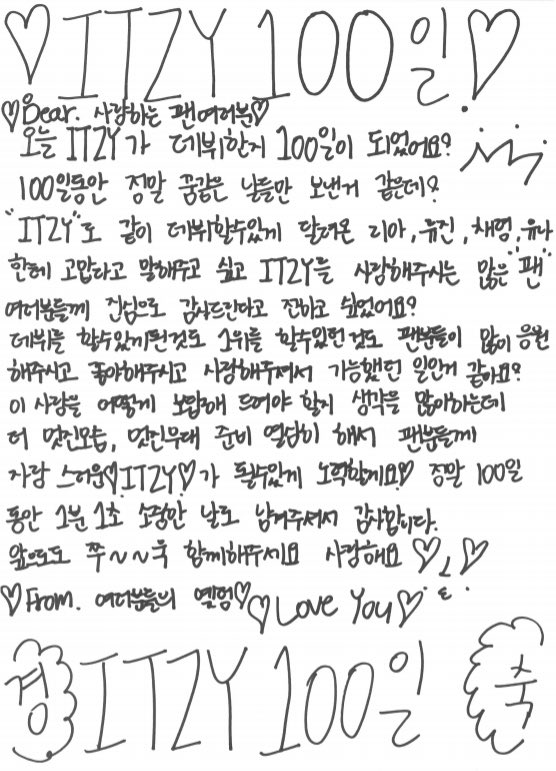 ♡ITZY 100일♡
♡Dear. 사랑하는 팬여러분♡
오늘 ITZY가 데뷔한지 100일이 되었어요?
100일동안 정말 꿈같은 날들만 보낸거 같은데?
"ITZY"로 같이 데뷔할수있게 달려온 리아, 류진, 채령, 유나
한테 고맙다고 말해주고 싶고 ITZY를 사랑해주시는 많은 "팬"
여러분들께 진심으로 감사드린다고 전하고 싶었어요?
데뷔를 할수있게된것도 1위를 할수있던것도 팬분들이 많이 응원
해주시고 좋아해주시고 사랑해주셔서 가능했던 일인거 같아요?
이 사랑을 어떻게 보답해 드려야 할지 생각을 많이하는데
더 멋진모습, 멋진무대 준비 열심히 해서 팬분들께
자랑 스러운♡ITZY♡가 될수있게 노력할게요♡ 정말 100일
동안 1분 1초 소중한 날로 남겨주셔서 감사합니다.
앞으로도 쭈~~욱 함께해주세요 사랑해요 ♡ㅅ♡
♡From. 여러분들의 옐험♡ ♡Love You♡
경 ITZY 100일 축